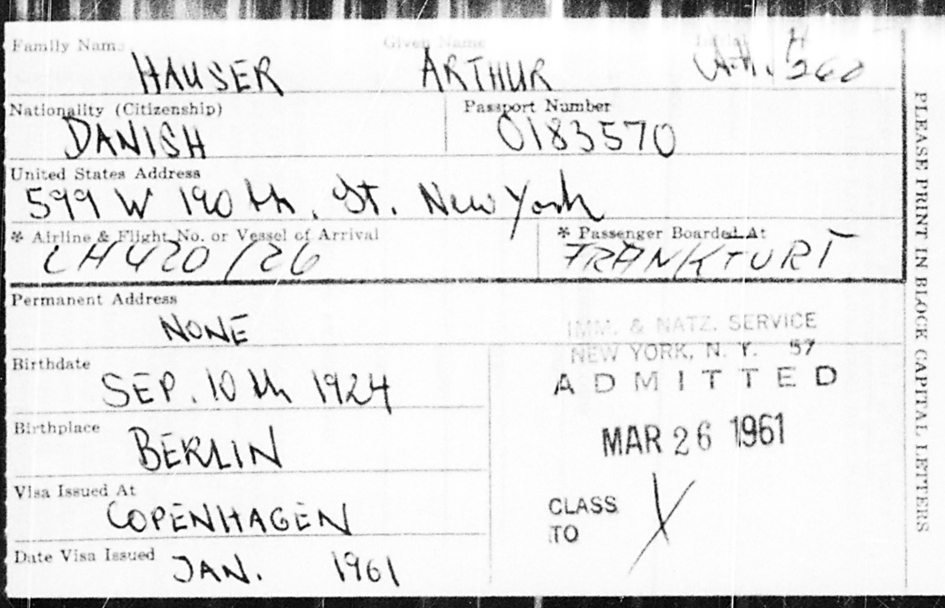 Family Name Given Name Initial
HAUSER ARTHUR A.H. H 260
Nationality (Citizenship) Passport Number
DANISH 0183570
United States Address
599 W 190 th. St. New York
* Airline & Flight No. or Vessel of Arrival * Passenger Boarded At
LH 420/26 FRANKFURT
Permanent Address
NONE
IMM. & NATZ. SERVICE
NEW YORK, N. Y. 57
ADMITTED
MAR 26 1961
CLASS
TO
Birthdate
SEP. 10 th 1924
Birthplace
BERLIN
Visa Issued At
COPENHAGEN
Date Visa Issued
JAN. 1961
PLEASE PRINT IN BLOCK CAPITAL LETTERS